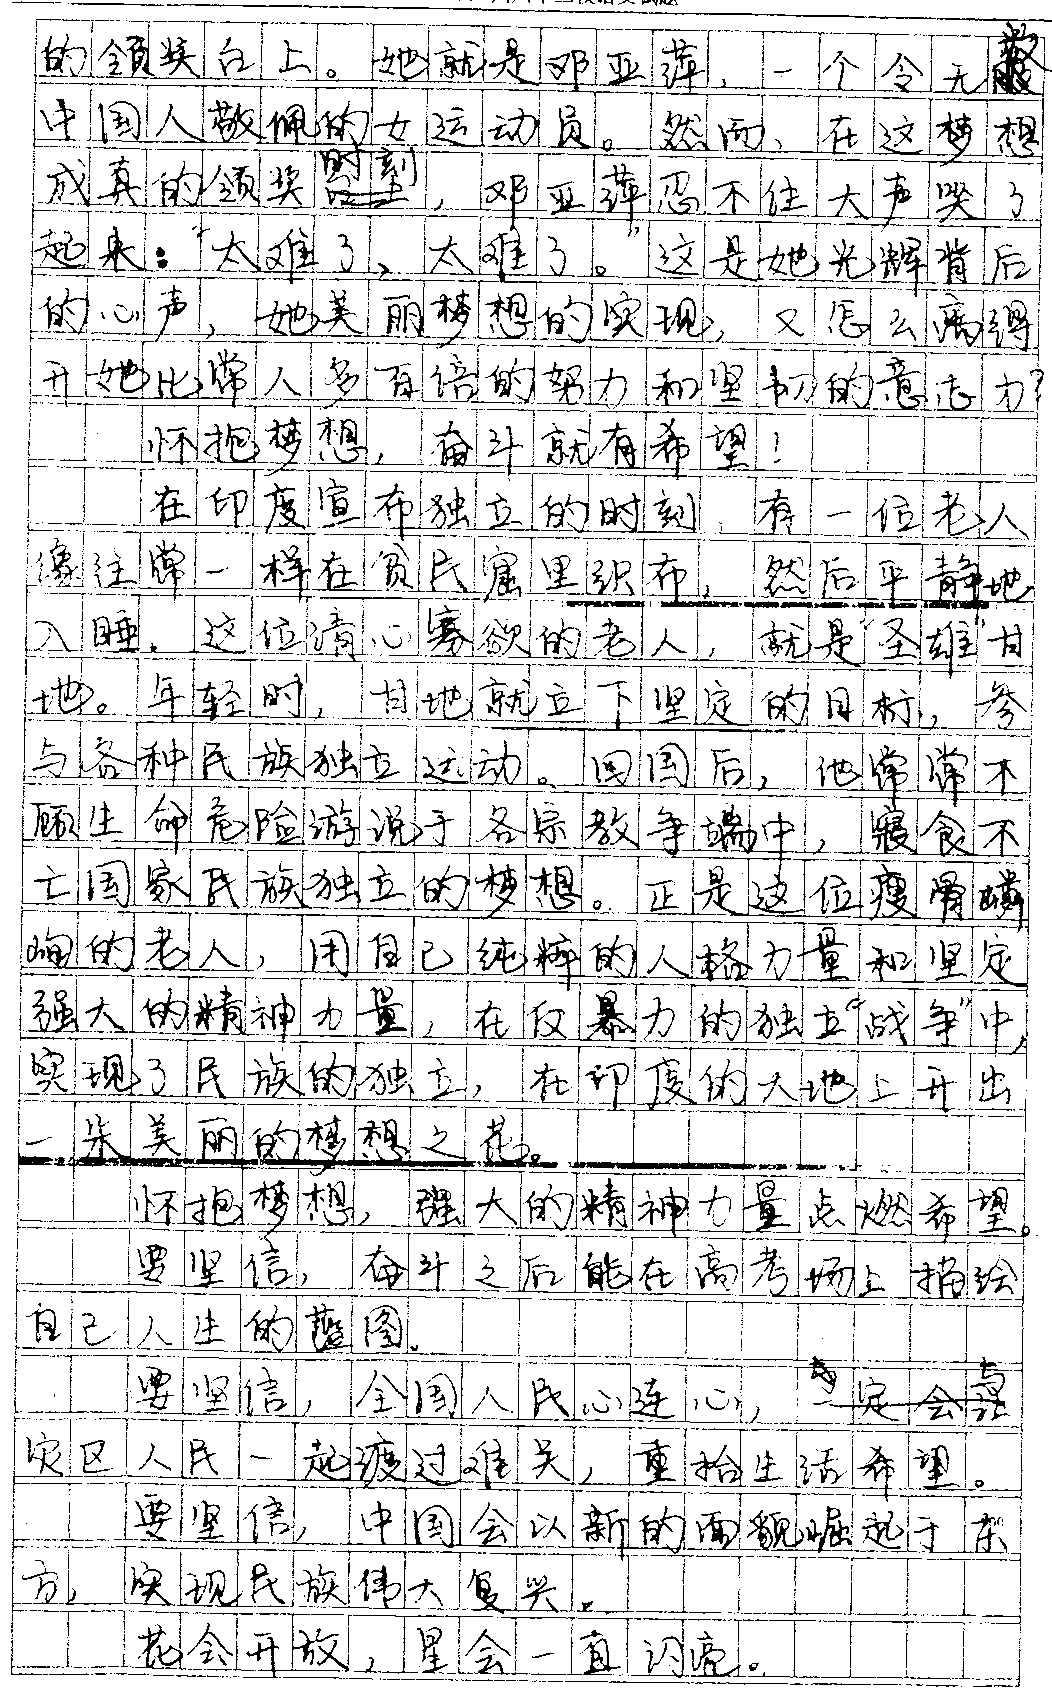 的领奖台上。她就是邓亚萍，一个令无数
中国人敬佩的女运动员。然而，在这梦想
成真的颁奖时刻，邓亚萍忍不住大声哭了
起来："太难了，太难了。"这是她光辉背后
的心声，她美丽梦想的实现，又怎么离得
开她比常人多百倍的努力和坚韧的意志力？
怀抱梦想，奋斗就有希望！
在印度宣布独立的时刻，有一位老人
像往常一样在贫民窟里织布，然后平静地
入睡。这位清心寡欲的老人，就是"圣雄"甘
地。年轻时，甘地就立下坚定的目标，参
与各种民族独立运动。回国后，他常常不
顾生命危险游说于各宗教争端中，寝食不
亡国家民族独立的梦想。正是这位瘦骨嶙
峋的老人，用自己纯粹的人格力量和坚定
强大的精神力量，在反暴力的独立"战争"中，
实现了民族的独立，在印度的大地上开出
一朵美丽的梦想之花。
怀抱梦想，强大的精神力量点燃希望。
要坚信，奋斗之后能在高考场上描绘
自己人生的蓝图。
要坚信，全国人民心连心，一定会与
灾区人民一起渡过难关，重拾生活希望。
要坚信，中国会以新的面貌崛起于东
方，实现民族伟大复兴。
花会开放，星会一直闪亮。